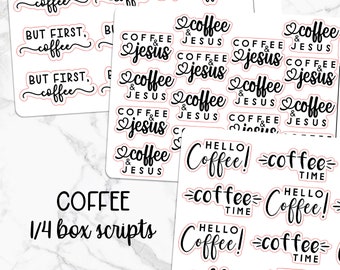 BUT FIRST,
coffee
BUT FIRST,
coffee
BUT FIRST,
coffee
BUT FIRST,
coffee
coffee
& JESUS
coffee
& JESUS
COFFEE
& jesus
COFFEE
& jesus
coffee
& JESUS
coffee
& JESUS
COFFEE
& jesus
COFFEE
& jesus
coffee
& JESUS
HELLO
Coffee!
coffee
TIME
coffee
TIME
HELLO
Coffee!
HELLO
Coffee!
coffee
TIME
COFFEE
1/4 box scripts